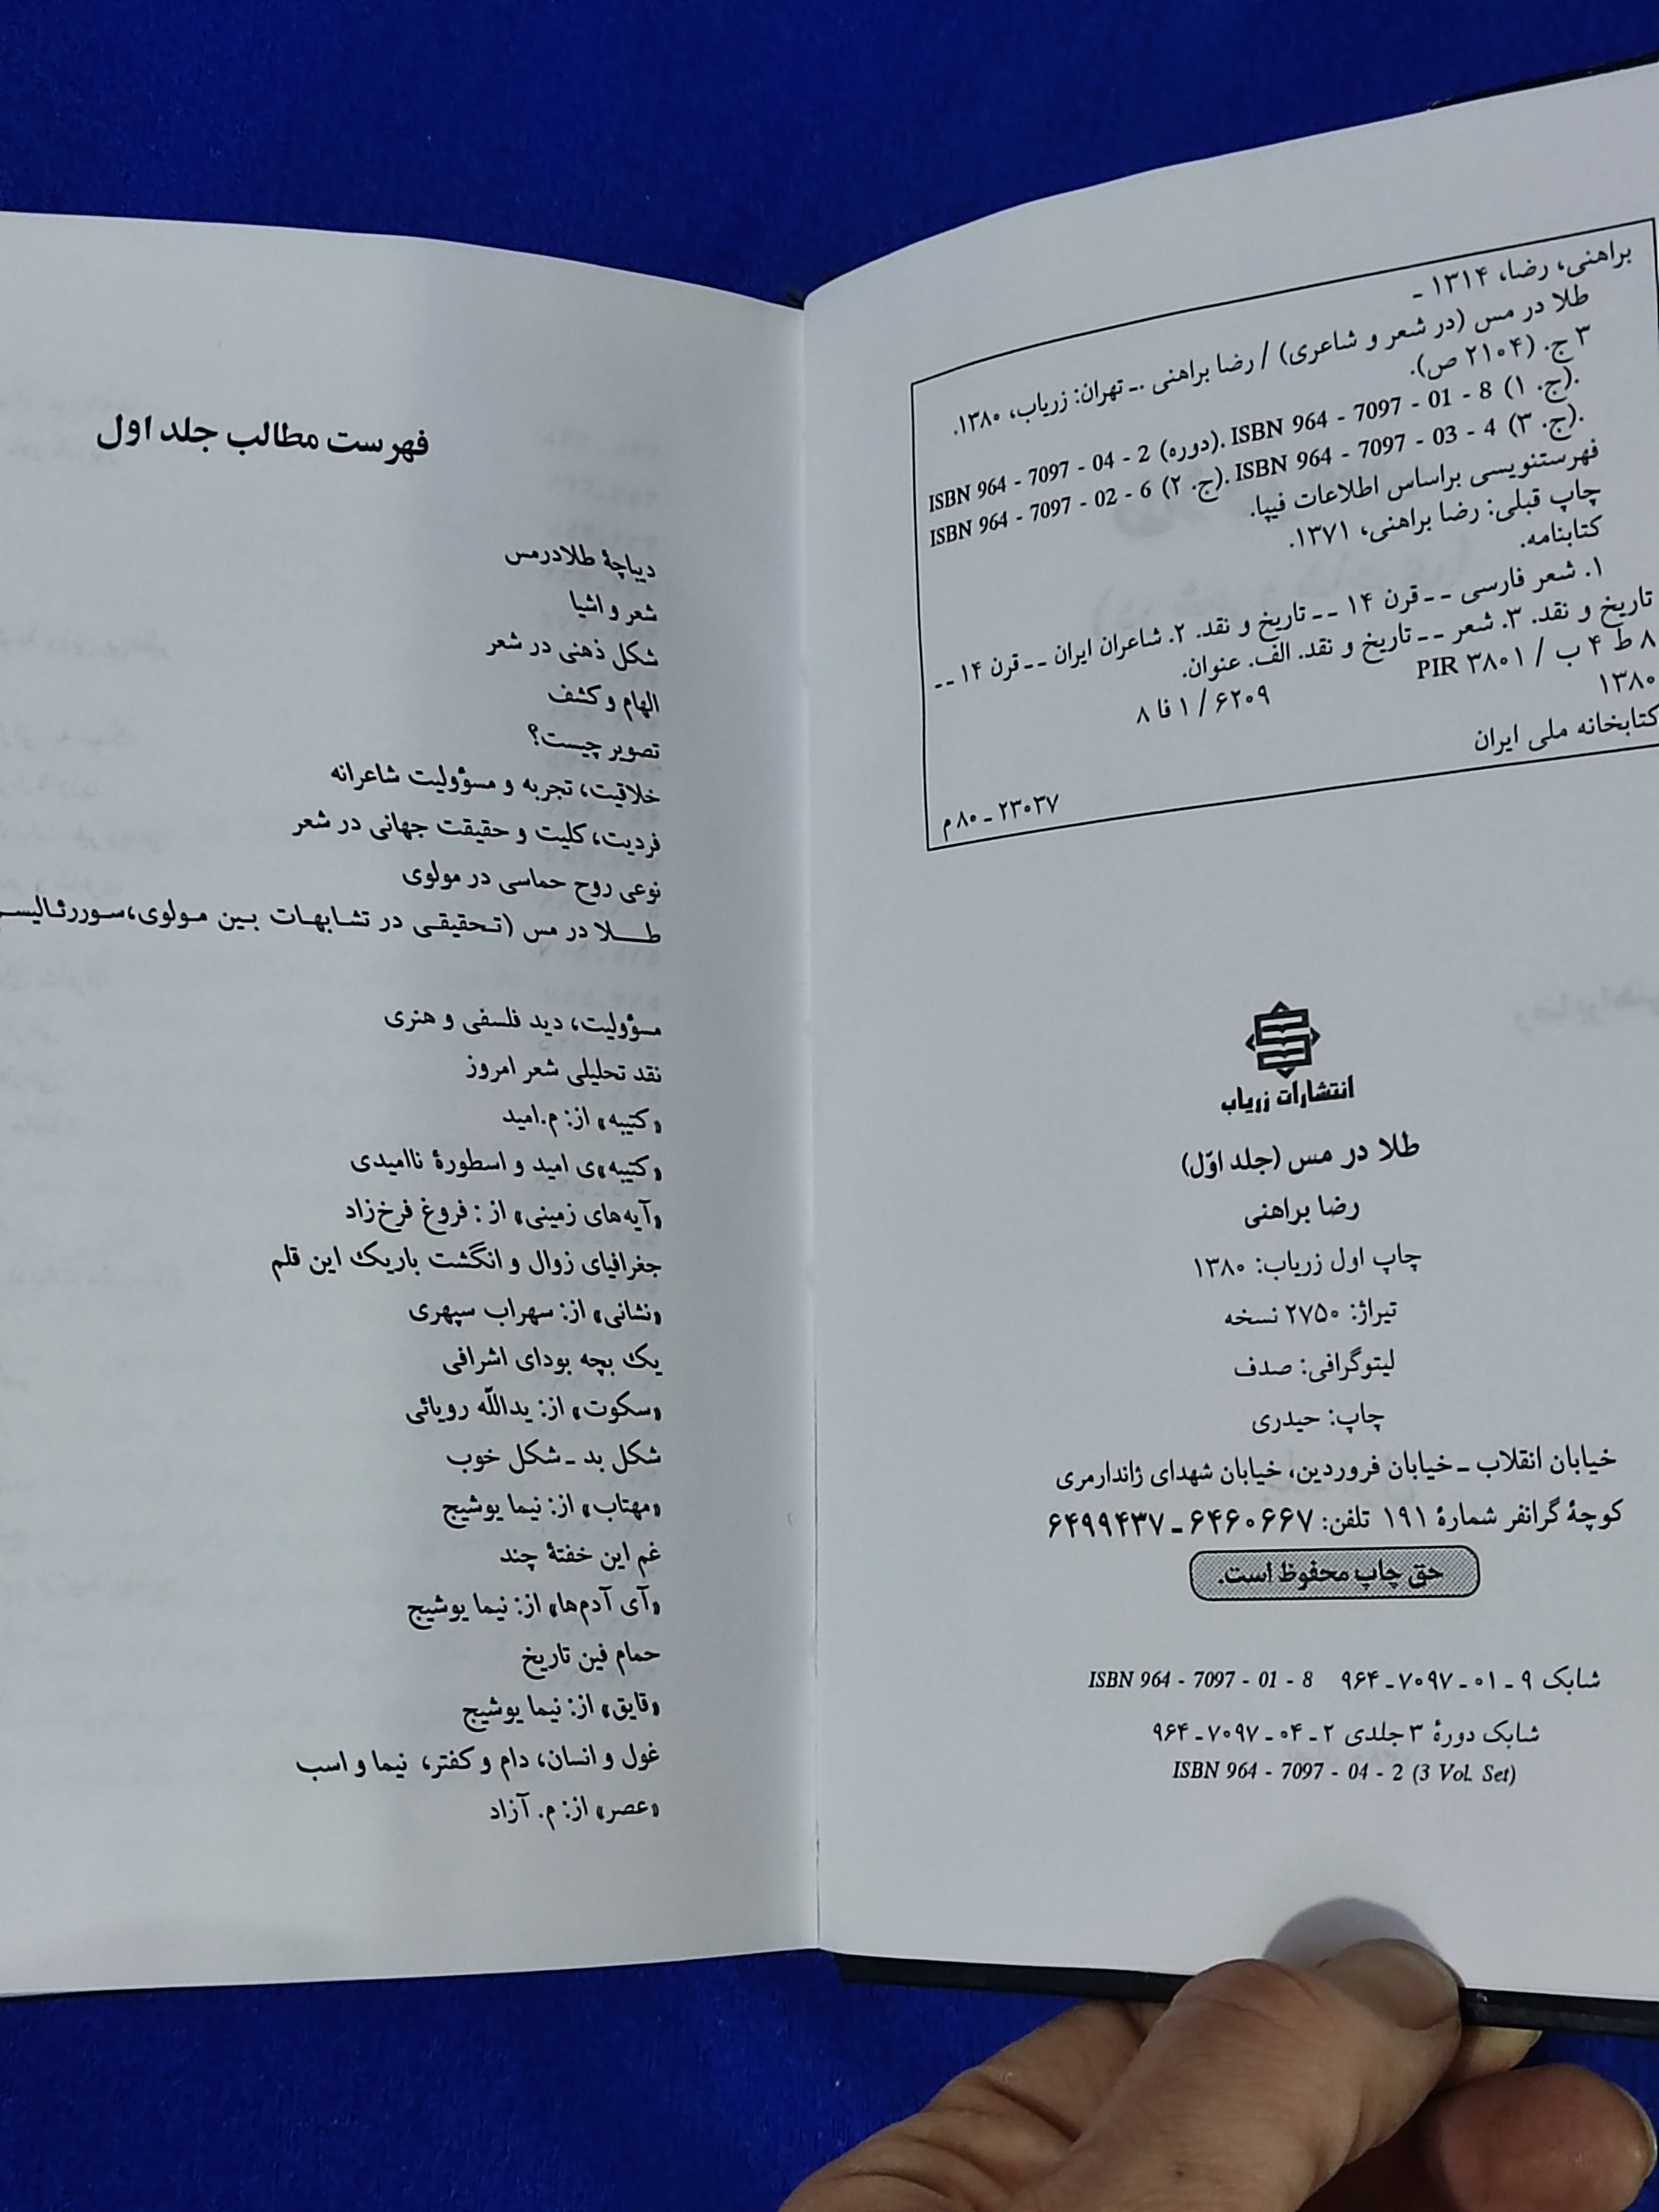 براهنی، رضا، ۱۳۱۴ ـ
طلا در مس (در شعر و شاعری) / رضا براهنی ـ. تهران: زریاب، ۱۳۸۰.
۳ ج. (۲۱۰۴ ص).
ISBN 964 - 7097 - 04 - 2 (دوره). ISBN 964 - 7097 - 01 - 8 (ج. ۱).
ISBN 964 - 7097 - 02 - 6 (ج. ۲). ISBN 964 - 7097 - 03 - 4 (ج. ۳).
فهرستنویسی براساس اطلاعات فیپا.
چاپ قبلی: رضا براهنی، ۱۳۷۱.
کتابنامه.
۱. شعر فارسی ـ ـ قرن ۱۴ ـ ـ تاریخ و نقد. ۲. شاعران ایران ـ ـ قرن ۱۴ ـ ـ
تاریخ و نقد. ۳. شعر ـ ـ تاریخ و نقد. الف. عنوان.
۸ ط ۴ ب / PIR ۳۸۰۱
۸ فا ۱ / ۶۲۰۹
۱۳۸۰
کتابخانه ملی ایران
۲۳۰۳۷ ـ ۸۰ م
انتشارات زریاب
طلا در مس (جلد اوّل)
رضا براهنی
چاپ اول زریاب: ۱۳۸۰
تیراژ: ۲۷۵۰ نسخه
لیتوگرافی: صدف
چاپ: حیدری
خیابان انقلاب ـ خیابان فروردین، خیابان شهدای ژاندارمری
کوچهٔ گرانفر شمارهٔ ۱۹۱ تلفن: ۶۴۶۰۶۶۷ ـ ۶۴۹۹۴۳۷
حق چاپ محفوظ است.
شابک ۹ ـ ۰۱ ـ ۷۰۹۷ ـ ۹۶۴ ISBN 964 - 7097 - 01 - 8
شابک دورهٔ ۳ جلدی ۲ ـ ۰۴ ـ ۷۰۹۷ ـ ۹۶۴
ISBN 964 - 7097 - 04 - 2 (3 Vol. Set)
فهرست مطالب جلد اول
دیباچهٔ طلادرمس
شعر و اشیا
شکل ذهنی در شعر
الهام و کشف
تصویر چیست؟
خلاقیت، تجربه و مسؤولیت شاعرانه
فردیت، کلیت و حقیقت جهانی در شعر
نوعی روح حماسی در مولوی
طـلا در مس (تـحقیقـی در تشـابهـات بـین مـولوی،سـوررئـالیسـ
مسؤولیت، دید فلسفی و هنری
نقد تحلیلی شعر امروز
«کتیبه» از: م.امید
«کتیبه»ی امید و اسطورهٔ ناامیدی
«آیه‌های زمینی» از : فروغ فرخ‌زاد
جغرافیای زوال و انگشت باریک این قلم
«نشانی» از: سهراب سپهری
یک بچه بودای اشرافی
«سکوت» از: یدالله رویائی
شکل بد ـ شکل خوب
«مهتاب» از: نیما یوشیج
غم این خفتهٔ چند
«آی آدم‌ها» از: نیما یوشیج
حمام فین تاریخ
«قایق» از: نیما یوشیج
غول و انسان، دام و کفتر، نیما و اسب
«عصر» از: م. آزاد